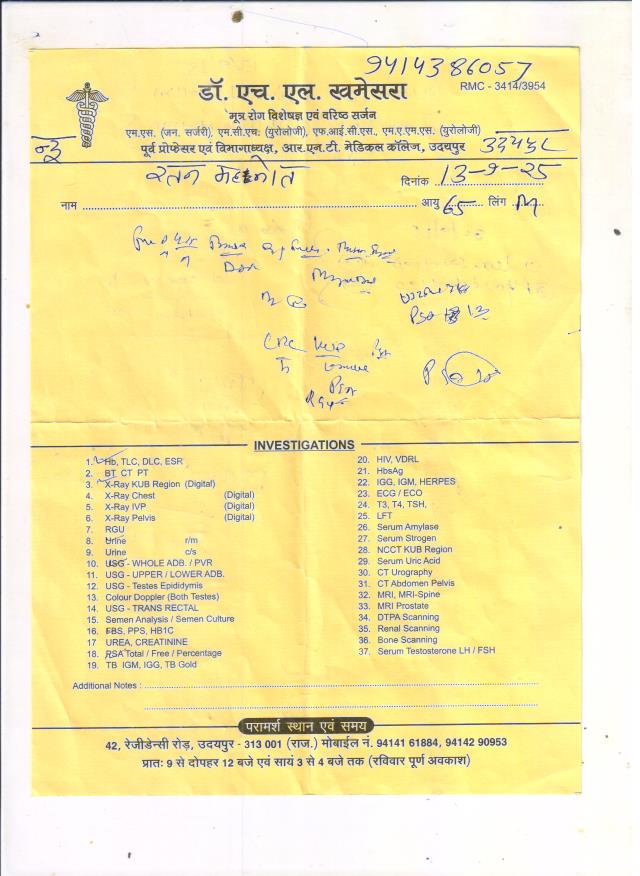 9414386057
डॉ. एच. एल. खमेसरा
RMC - 3414/3954
मूत्र रोग विशेषज्ञ एवं वरिष्ठ सर्जन
एम.एस. (जन. सर्जरी), एम.सी.एच. (युरोलोजी), एफ.आई.सी.एस., एम.ए.एम.एस. (युरोलोजी)
पूर्व प्रोफेसर एवं विभागाध्यक्ष, आर.एन.टी. मेडिकल कॉलेज, उदयपुर
रतन
दिनांक 13-9-25
नाम आयु 65 लिंग M
PSA
CBC
INVESTIGATIONS
1. Hb, TLC, DLC, ESR
2. BT CT PT
3. X-Ray KUB Region (Digital)
4. X-Ray Chest (Digital)
5. X-Ray IVP (Digital)
6. X-Ray Pelvis (Digital)
7. RGU
8. Urine r/m
9. Urine c/s
10. USG - WHOLE ADB. / PVR
11. USG - UPPER / LOWER ADB.
12. USG - Testes Epididymis
13. Colour Doppler (Both Testes)
14. USG - TRANS RECTAL
15. Semen Analysis / Semen Culture
16. FBS, PPS, HB1C
17 UREA, CREATININE
18. PSA Total / Free / Percentage
19. TB IGM, IGG, TB Gold
20. HIV, VDRL
21. HbsAg
22. IGG, IGM, HERPES
23. ECG / ECO
24. T3, T4, TSH,
25. LFT
26. Serum Amylase
27. Serum Strogen
28. NCCT KUB Region
29. Serum Uric Acid
30. CT Urography
31. CT Abdomen Pelvis
32. MRI, MRI-Spine
33. MRI Prostate
34. DTPA Scanning
35. Renal Scanning
36. Bone Scanning
37. Serum Testosterone LH / FSH
Additional Notes :
परामर्श स्थान एवं समय
42, रेजीडेन्सी रोड़, उदयपुर - 313 001 (राज.) मोबाईल नं. 94141 61884, 94142 90953
प्रातः 9 से दोपहर 12 बजे एवं सायं 3 से 4 बजे तक (रविवार पूर्ण अवकाश)